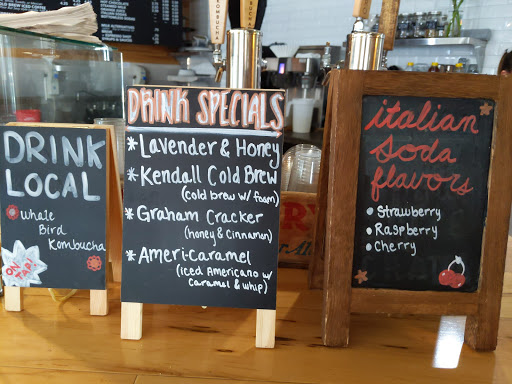 KOMBUCHA
DRINK
LOCAL
Whale
Bird
Kombucha
ON
TAP!
DRINK SPECIALS
* Lavender & Honey
* Kendall Cold Brew
(cold brew w/ foam)
* Graham Cracker
(honey & cinnamon)
* Ameri-caramel
(iced Americano w/
caramel & whip)
italian
soda
flavors
• Strawberry
• Raspberry
• Cherry